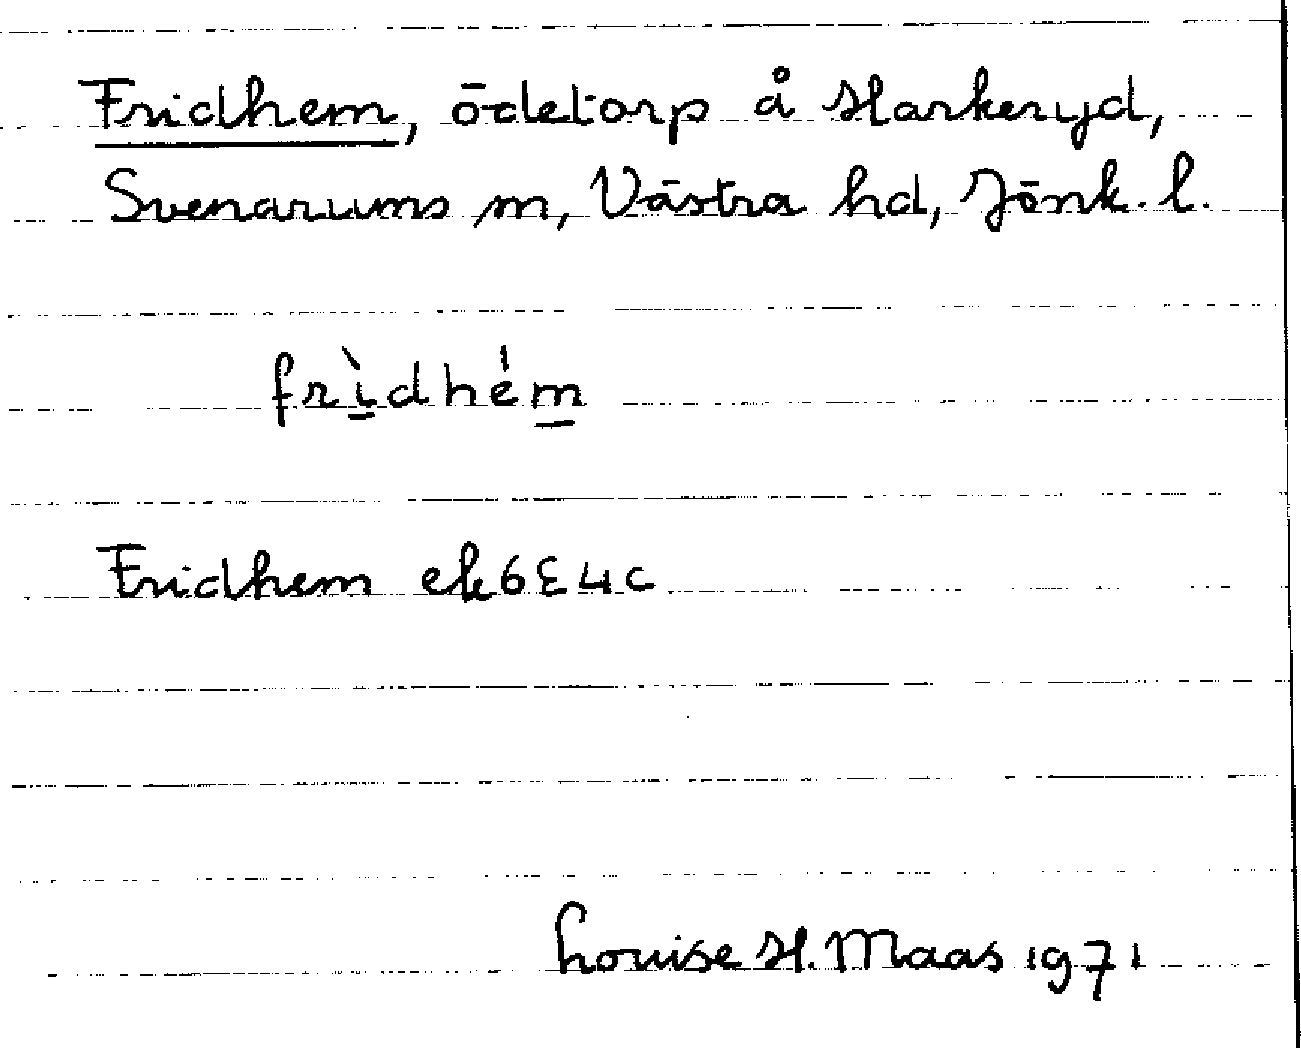 Fridhem, ödetorp å Harkeryd,
Svenarums sn, Västra hd, Jönk. l.
frìdhém
Fridhem ek6E4c
Louise H. Maas 1971